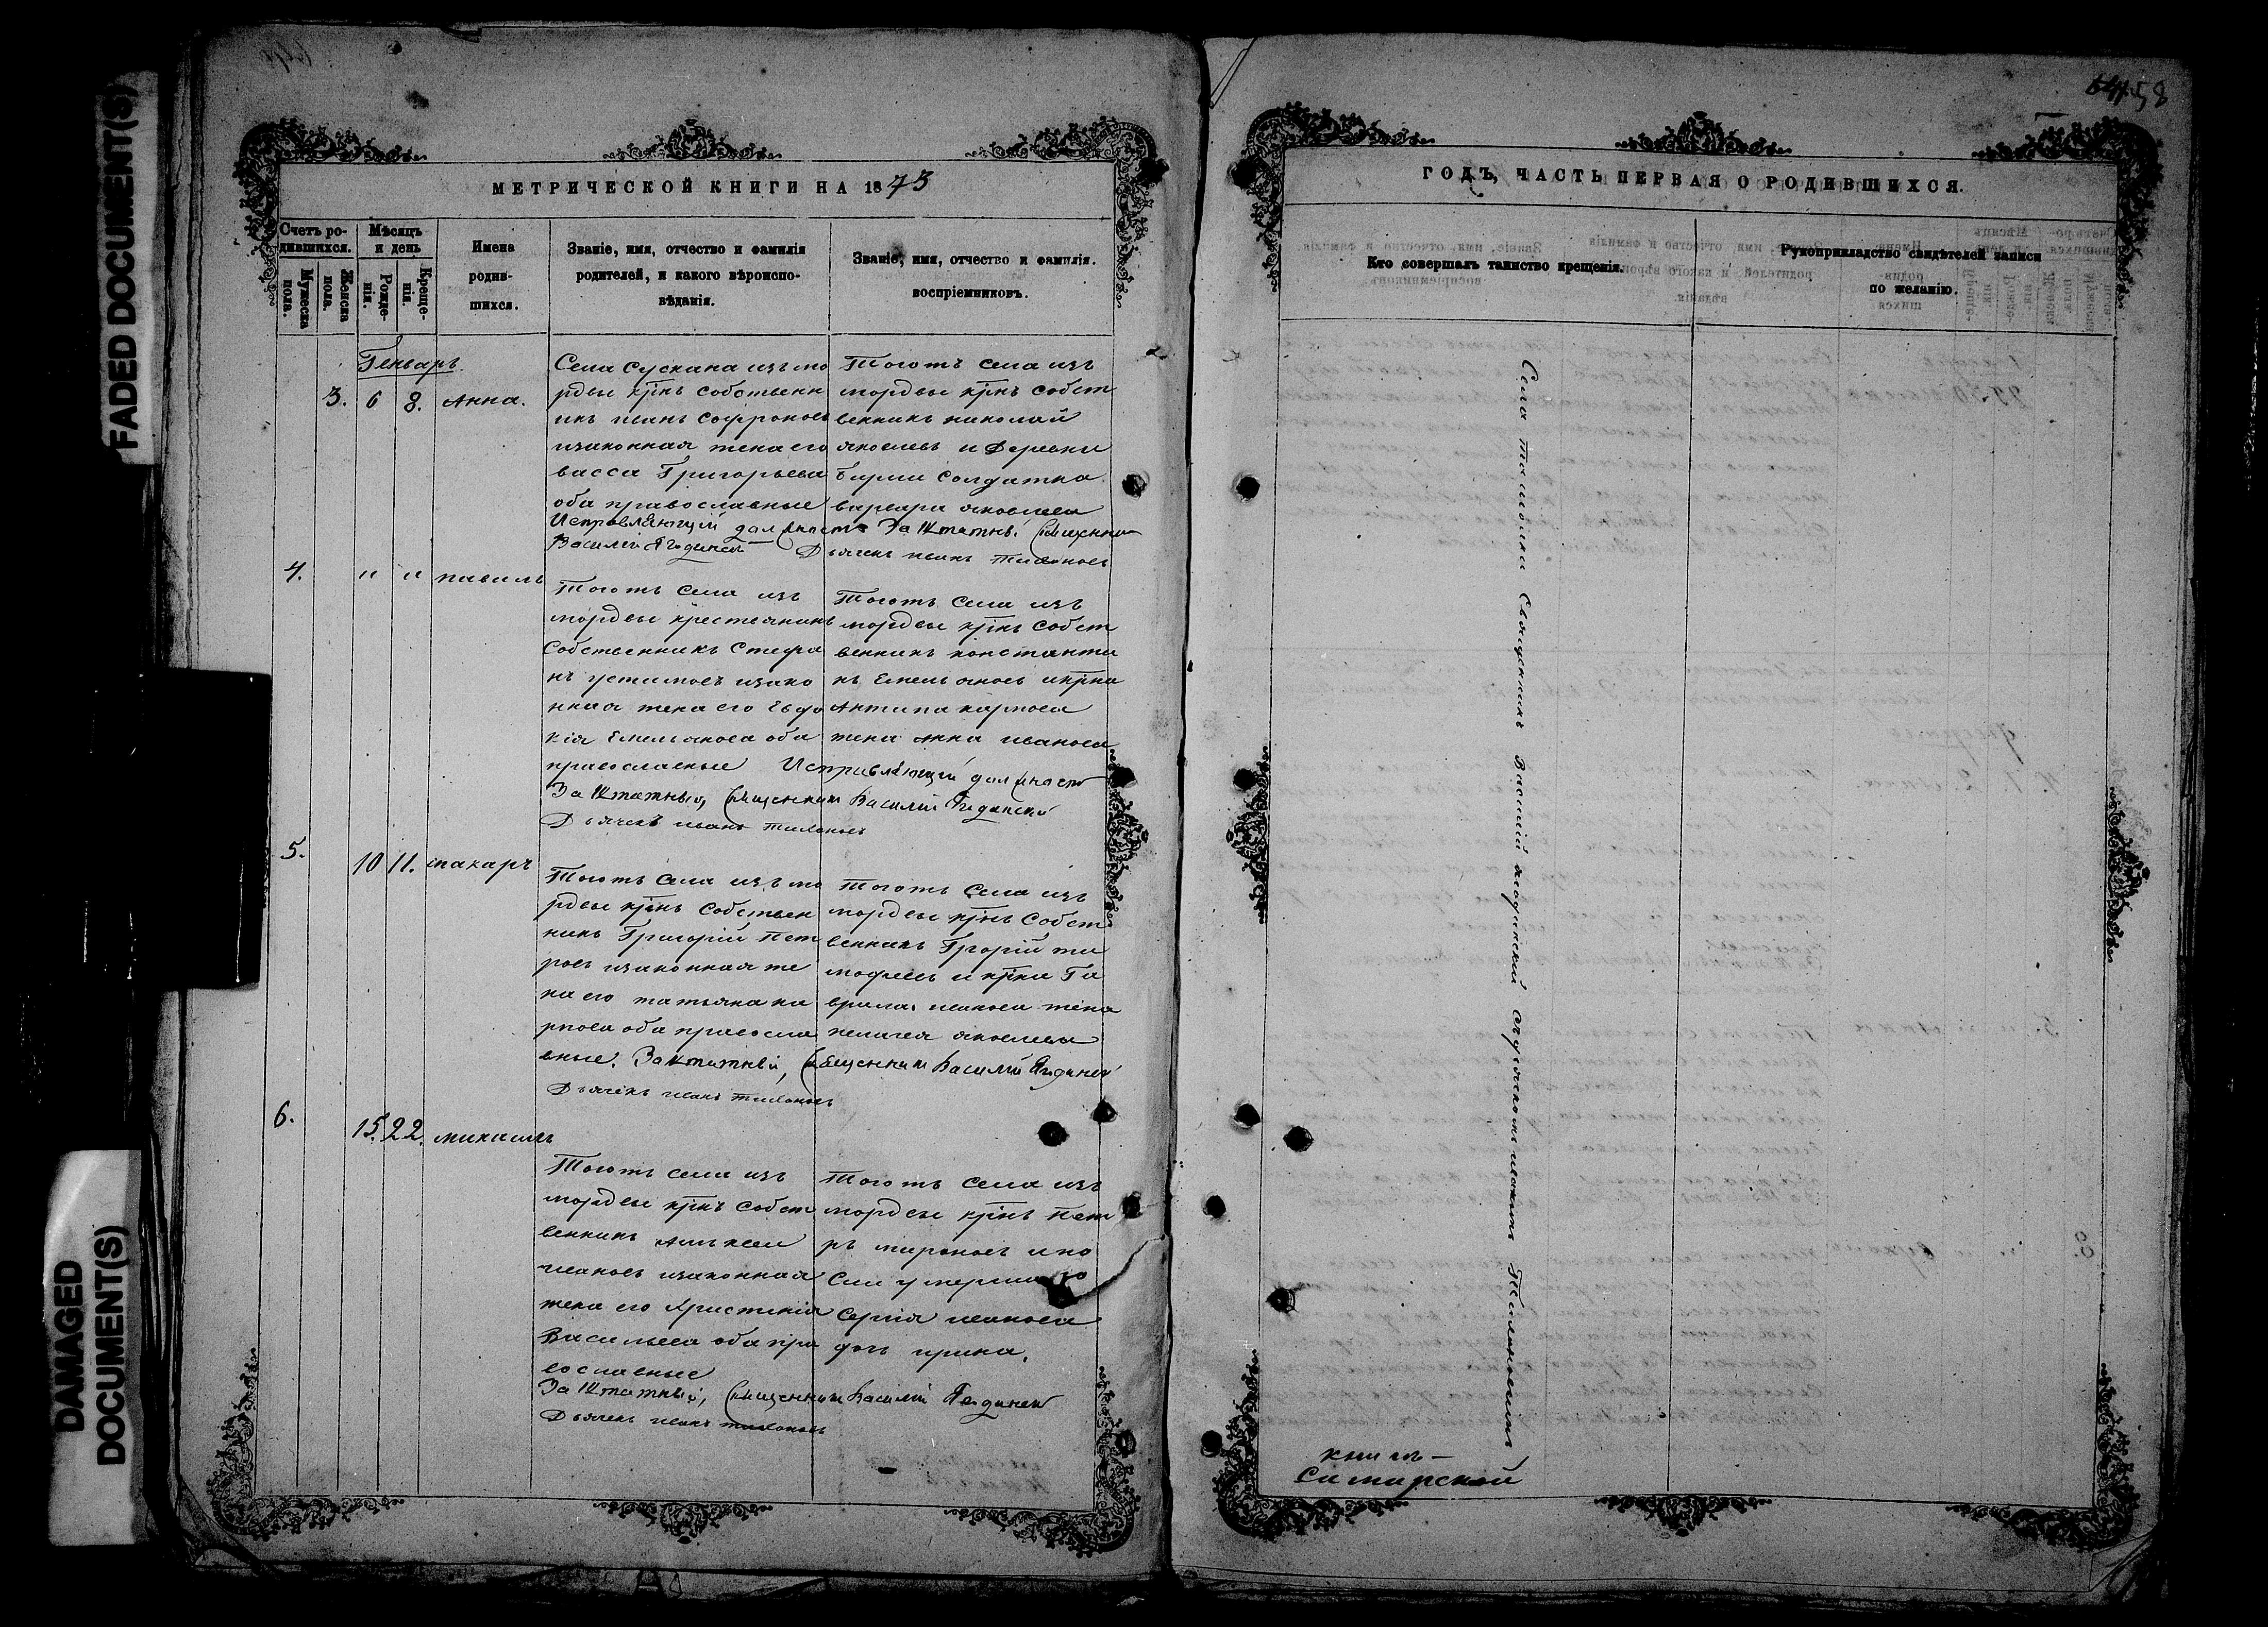 FADED DOCUMENT(S)
DAMAGED
DOCUMENT(S)
МЕТРИЧЕСКОЙ КНИГИ НА 1873
Счетъ ро-
дившихся.
Мужеска
пола.
Женска
пола.
Мѣсяцъ
и день
Рожде-
нія.
Креще-
нія.
Имена
родив-
шихся.
Званіе, имя, отчество и фамилія
родителей, и какого вѣроиспо-
вѣданія.
Званіе, имя, отчество и фамилія.
воспріемниковъ.
Генварь
3. 6 8. Анна.
Села Сускана изъ мо
рдвы крнъ собственн
икъ иванъ софроновъ
изаконная жена его
васса Григорьева
оба православные
Тогожъ села изъ
мордвы крнъ собст
венникъ николай
яковлевъ и Деревни
Бирли солдатка
варвара яковлева
Исправляющій должность Заштатны. Священник
Василій Ягодинскій Дьячекъ иванъ тихоновъ
4. " " павилъ
Тогожъ села изъ
мордвы крестьянинъ
Собственникъ Стефа
нъ устимовъ изако
нная жена его Евдо
кія Емельянова оба
православные
Тогожъ села изъ
мордвы крнъ собст
венникъ константи
нъ Емельяновъ икрна
Антипа карпова
жена Анна иванова
Исправляющій должность
Заштатный, Священник Василій Ягодинскій
Дьячекъ иванъ тихоновъ
5. 10 11. макаръ
Тогожъ села изъ мо
рдвы крнъ Собствен
никъ Григорій Пет
ровъ изаконная же
на его татьяна ка
рпова оба правосла
вные.
Тогожъ села изъ
мордвы крнъ Собст
венникъ Ггорій ти
мофеевъ и крна Га
врила иванова жена
пелагея яковлева
Заштатный, Священник Василій Ягодинскій
Дьячекъ иванъ тихоновъ
6. 15. 22. михаилъ
Тогожъ села изъ
мордвы крнъ собст
венникъ Алексеи
ивановъ изаконная
жена его Христинія
Васильева оба пра
вославные
Тогожъ села изъ
мордвы крнъ Пет
ръ мироновъ ипо
Сли умершаго
Сергія иванова
дочь ирина.
Заштатный, Священник Василій Ягодинскій
Дьячекъ иванъ тихоновъ
58
ГОДЪ, ЧАСТЬ ПЕРВАЯ О РОДИВШИХСЯ.
Кто совершалъ таинство крещенія.
Рукоприкладство свидѣтелей записи
по желанію.
Священникъ Василий ягодинский сдьячкомъ иваномъ Тихоновимъ
книгъ –
Самарской